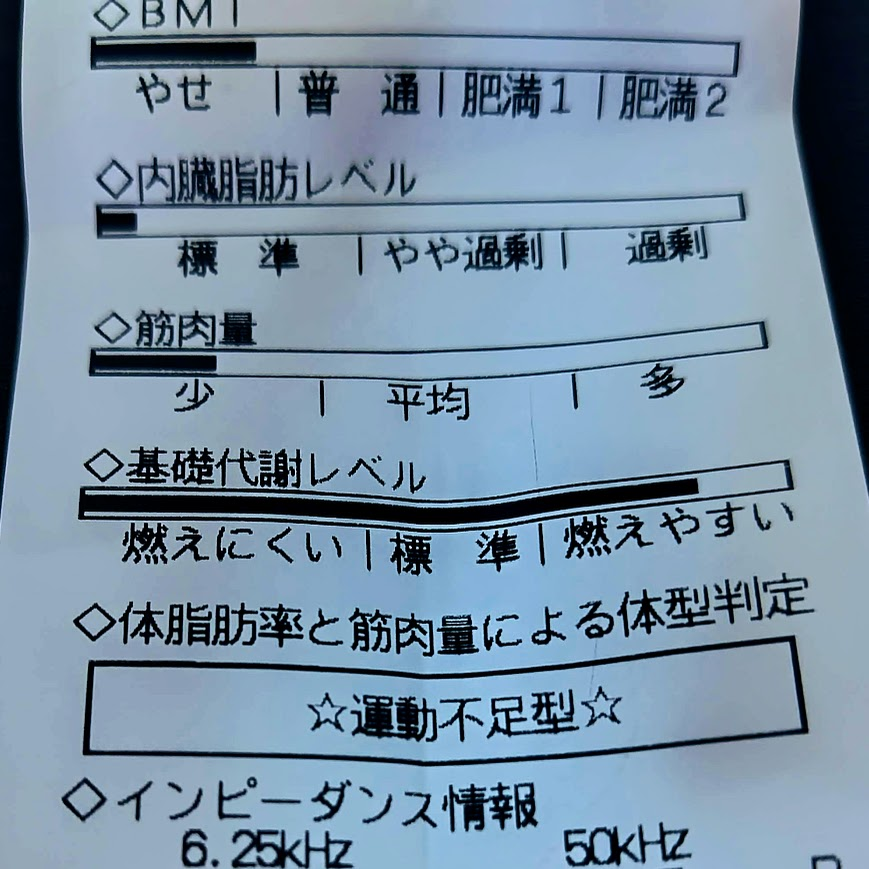 ◇BMI
やせ | 普 通 | 肥満1 | 肥満2
◇内臓脂肪レベル
標 準 | やや過剰 | 過剰
◇筋肉量
少 | 平均 | 多
◇基礎代謝レベル
燃えにくい | 標 準 | 燃えやすい
◇体脂肪率と筋肉量による体型判定
☆運動不足型☆
◇インピーダンス情報
6.25kHz 50kHz